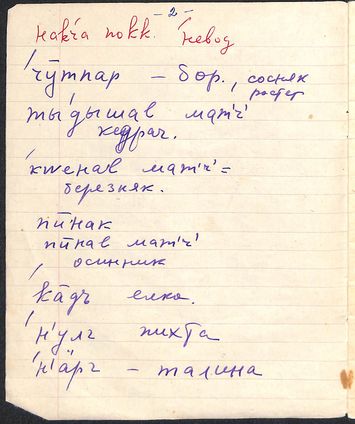 - 2 -
накча покк. невод
чӯтпар – бор., сосняк
растет
ты́дышав мат'ч'
кедрач.
кwенав мат'ч' =
березняк.
пӣнак
пӣнав мат'ч'
осинник
ка̄дъ елка.
н'улг пихта
н'ӓрг – талина